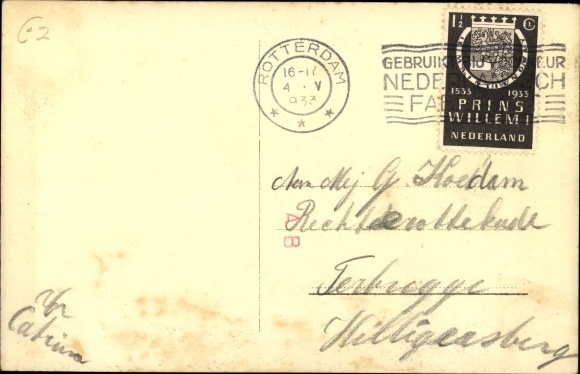 C-2
ROTTERDAM
16-17
4 . V
1933
GEBRUIKT BIJ VOORKEUR
NEDERLANDSCH
FABRIKAAT
1½ Ct
1533 1933
PRINS
WILLEM I
NEDERLAND
Aan Mej G. Koedam
Rechter Rottekade
AB
Terbregge
Hilligersberg
Catrina